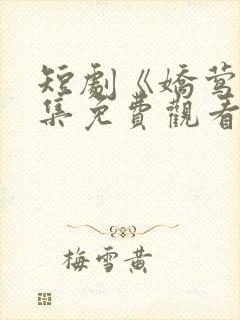 短劇《嬌鶯
集免費觀看
梅雪黃